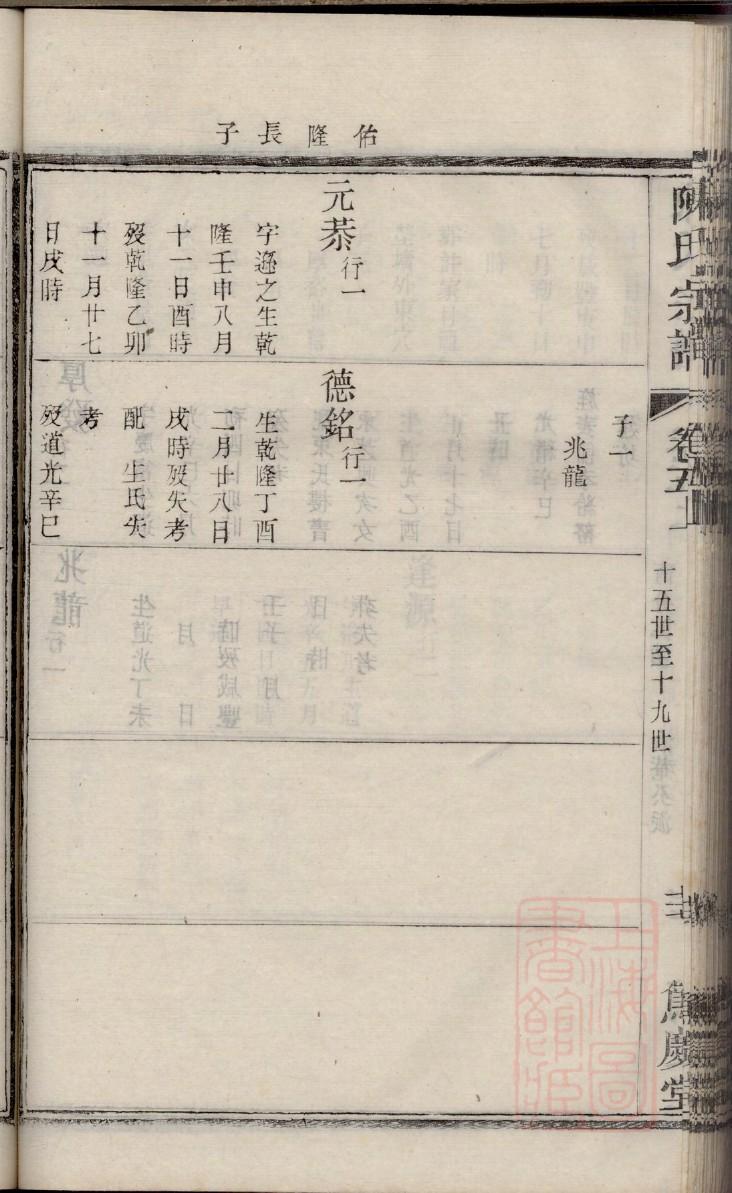 佑隆長子
陳氏宗譜
卷五上
十五世至十九世
慶堂
元恭行一
字遜之生乾
隆壬申八月
十一日酉時
歿乾隆乙卯
十一月廿七
日戌時
子一
兆龍
德銘行一
生乾隆丁酉
二月廿八日
戌時歿失考
配 生氏失
考
歿道光辛巳
上海圖
書館藏